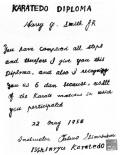 KARATEDO DIPLOMA
Harry G. Smith JR
You have completed all steps
and therefore I give you this
Diploma, and also I recognize
you as 6 dan because, well
of the Karate motions in which
you participated
22 May 1958
Instructor Tatsuo Shimabuku
Isshinryu Karatedo